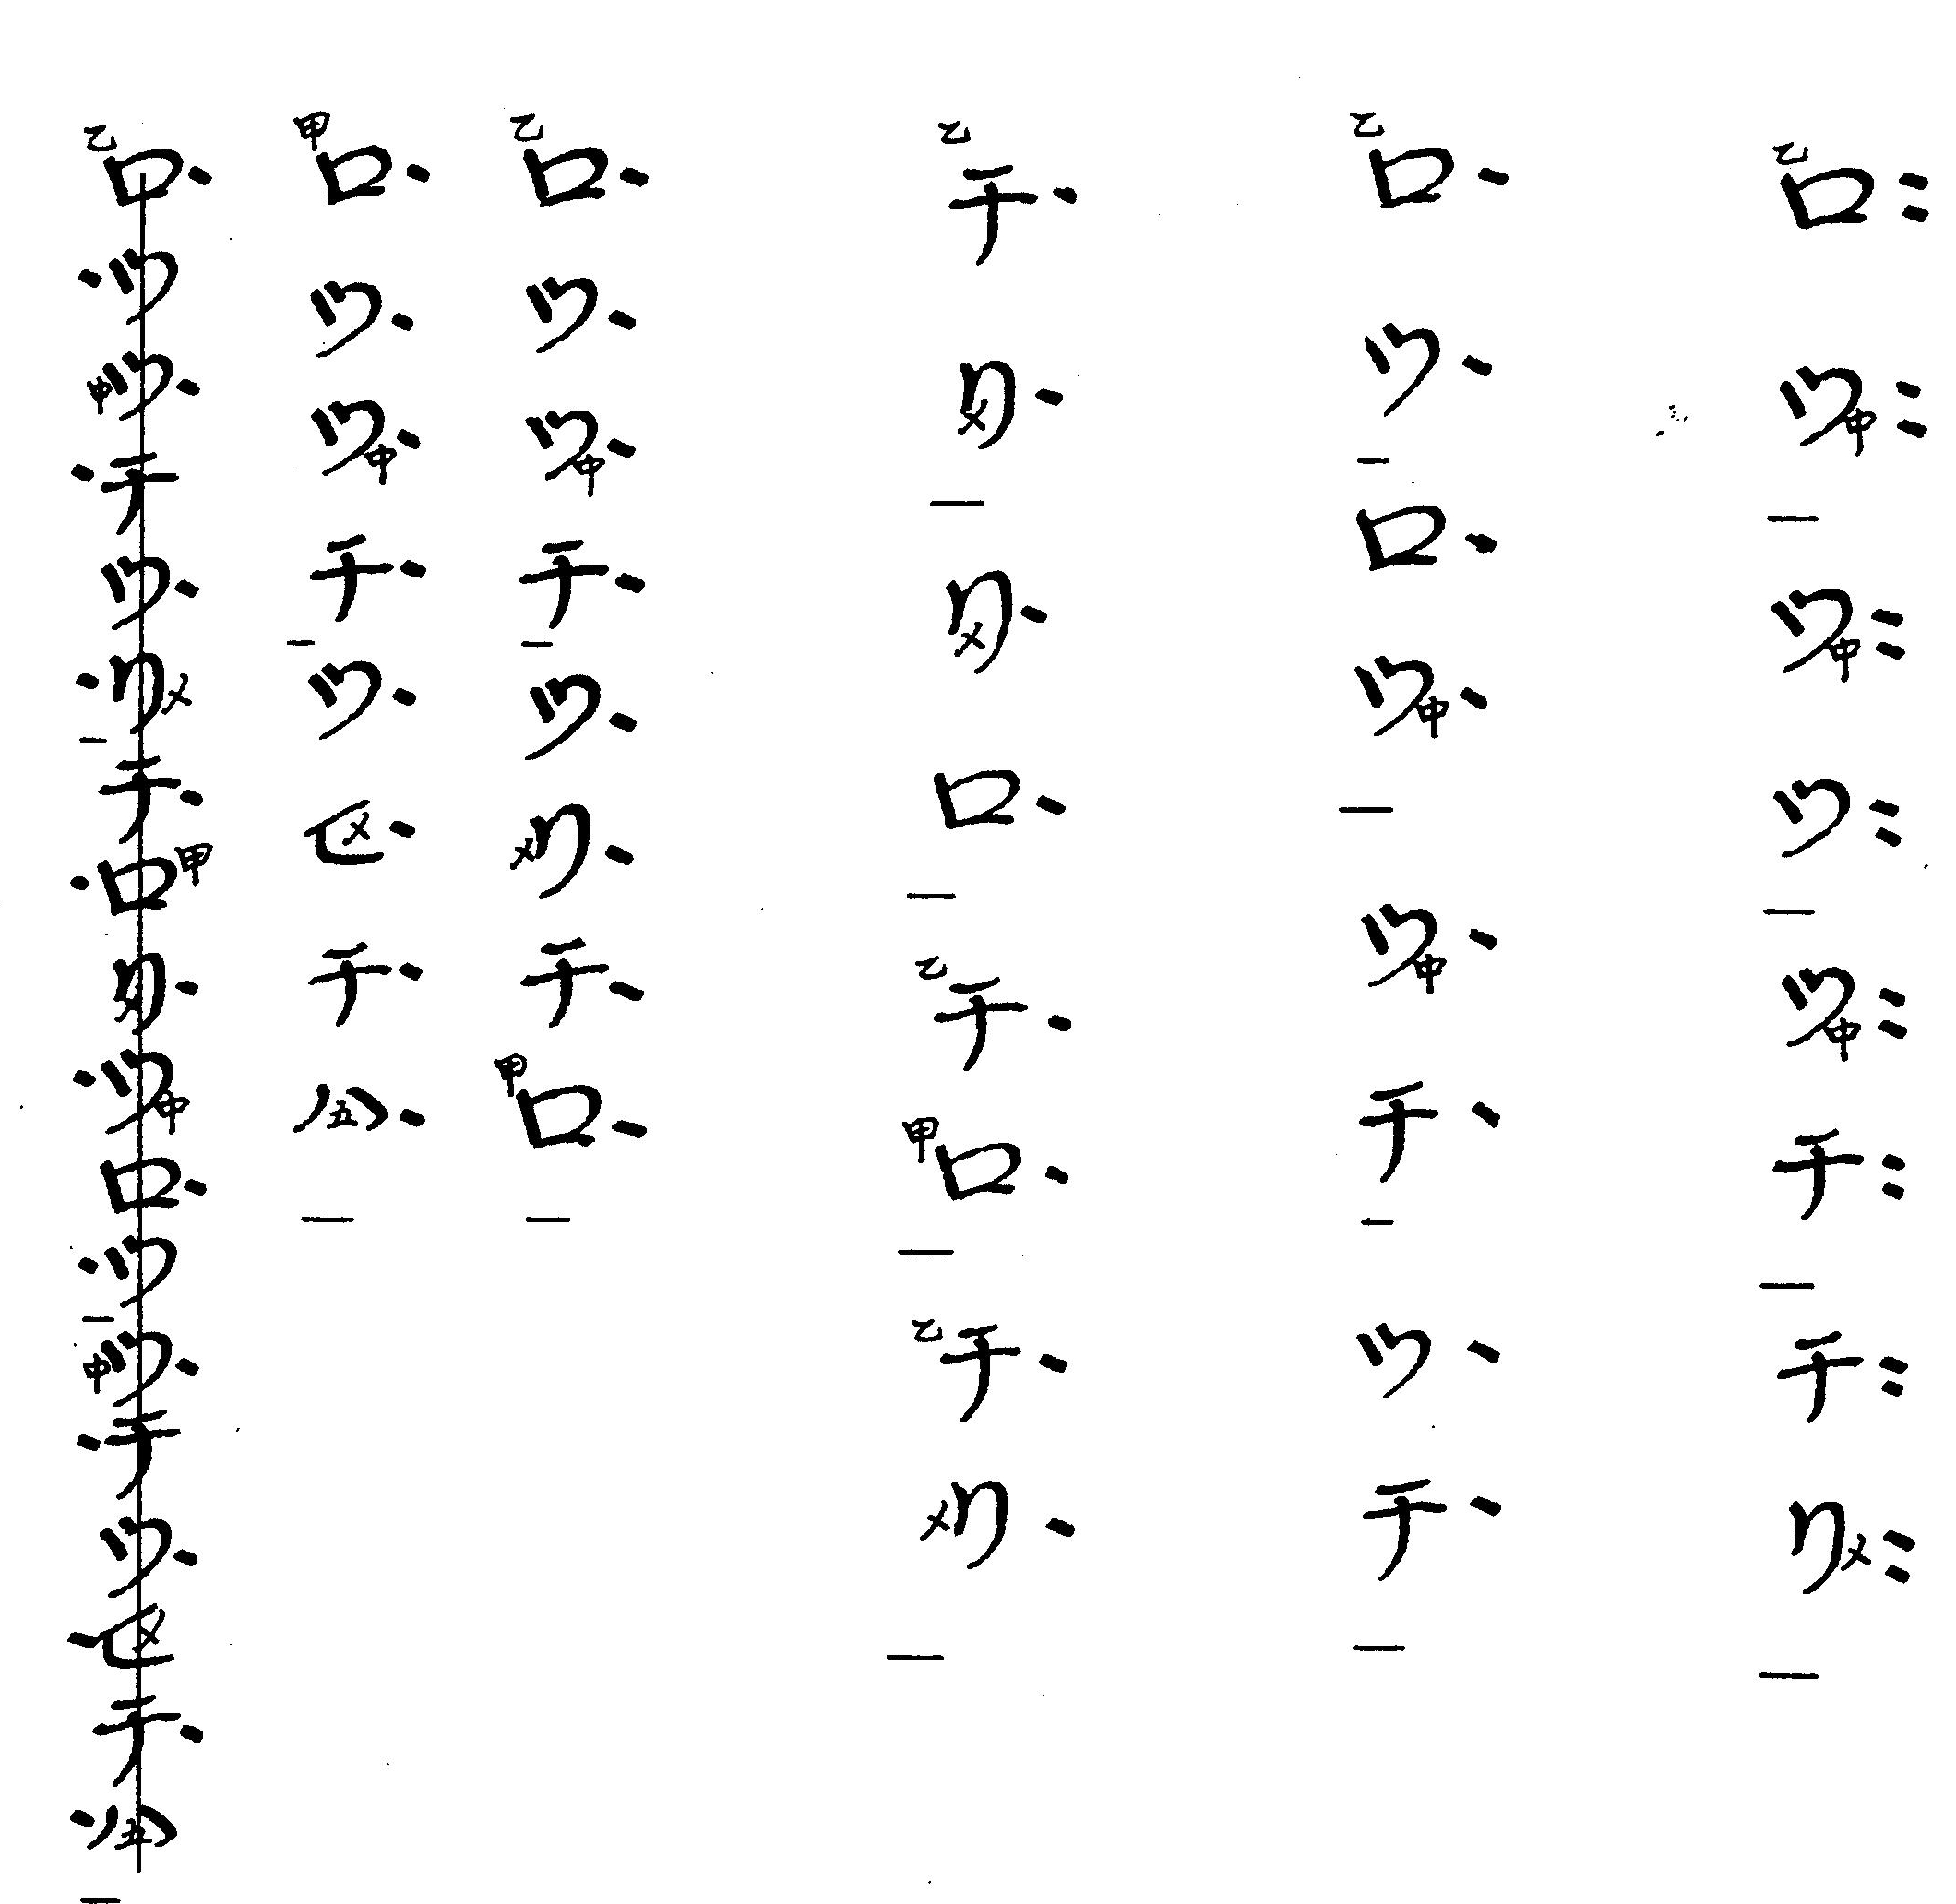 乙ロ ツ中 一 ツ中 ツ 一 ツ中 チ 一 チ リメ 一
乙ロ ツ 一 ロ ツ中 一 ツ中 チ 一 ツ チ 一
乙チ リメ 一 リメ ロ 一 乙チ 甲ロ 一 乙チ メリ 一
乙ロ ツ ツ中 チ 一 ツ メリ チ 甲ロ 一
甲ロ ツ ツ中 チ 一 ツ ヒメ チ ハ五 一
乙ロ ツ 中ツ チ ツ リメ 一 チ ロ甲 リメ ツ中 ロ ツ 一 中ツ チ ツ ヒメ チ ハ五 一